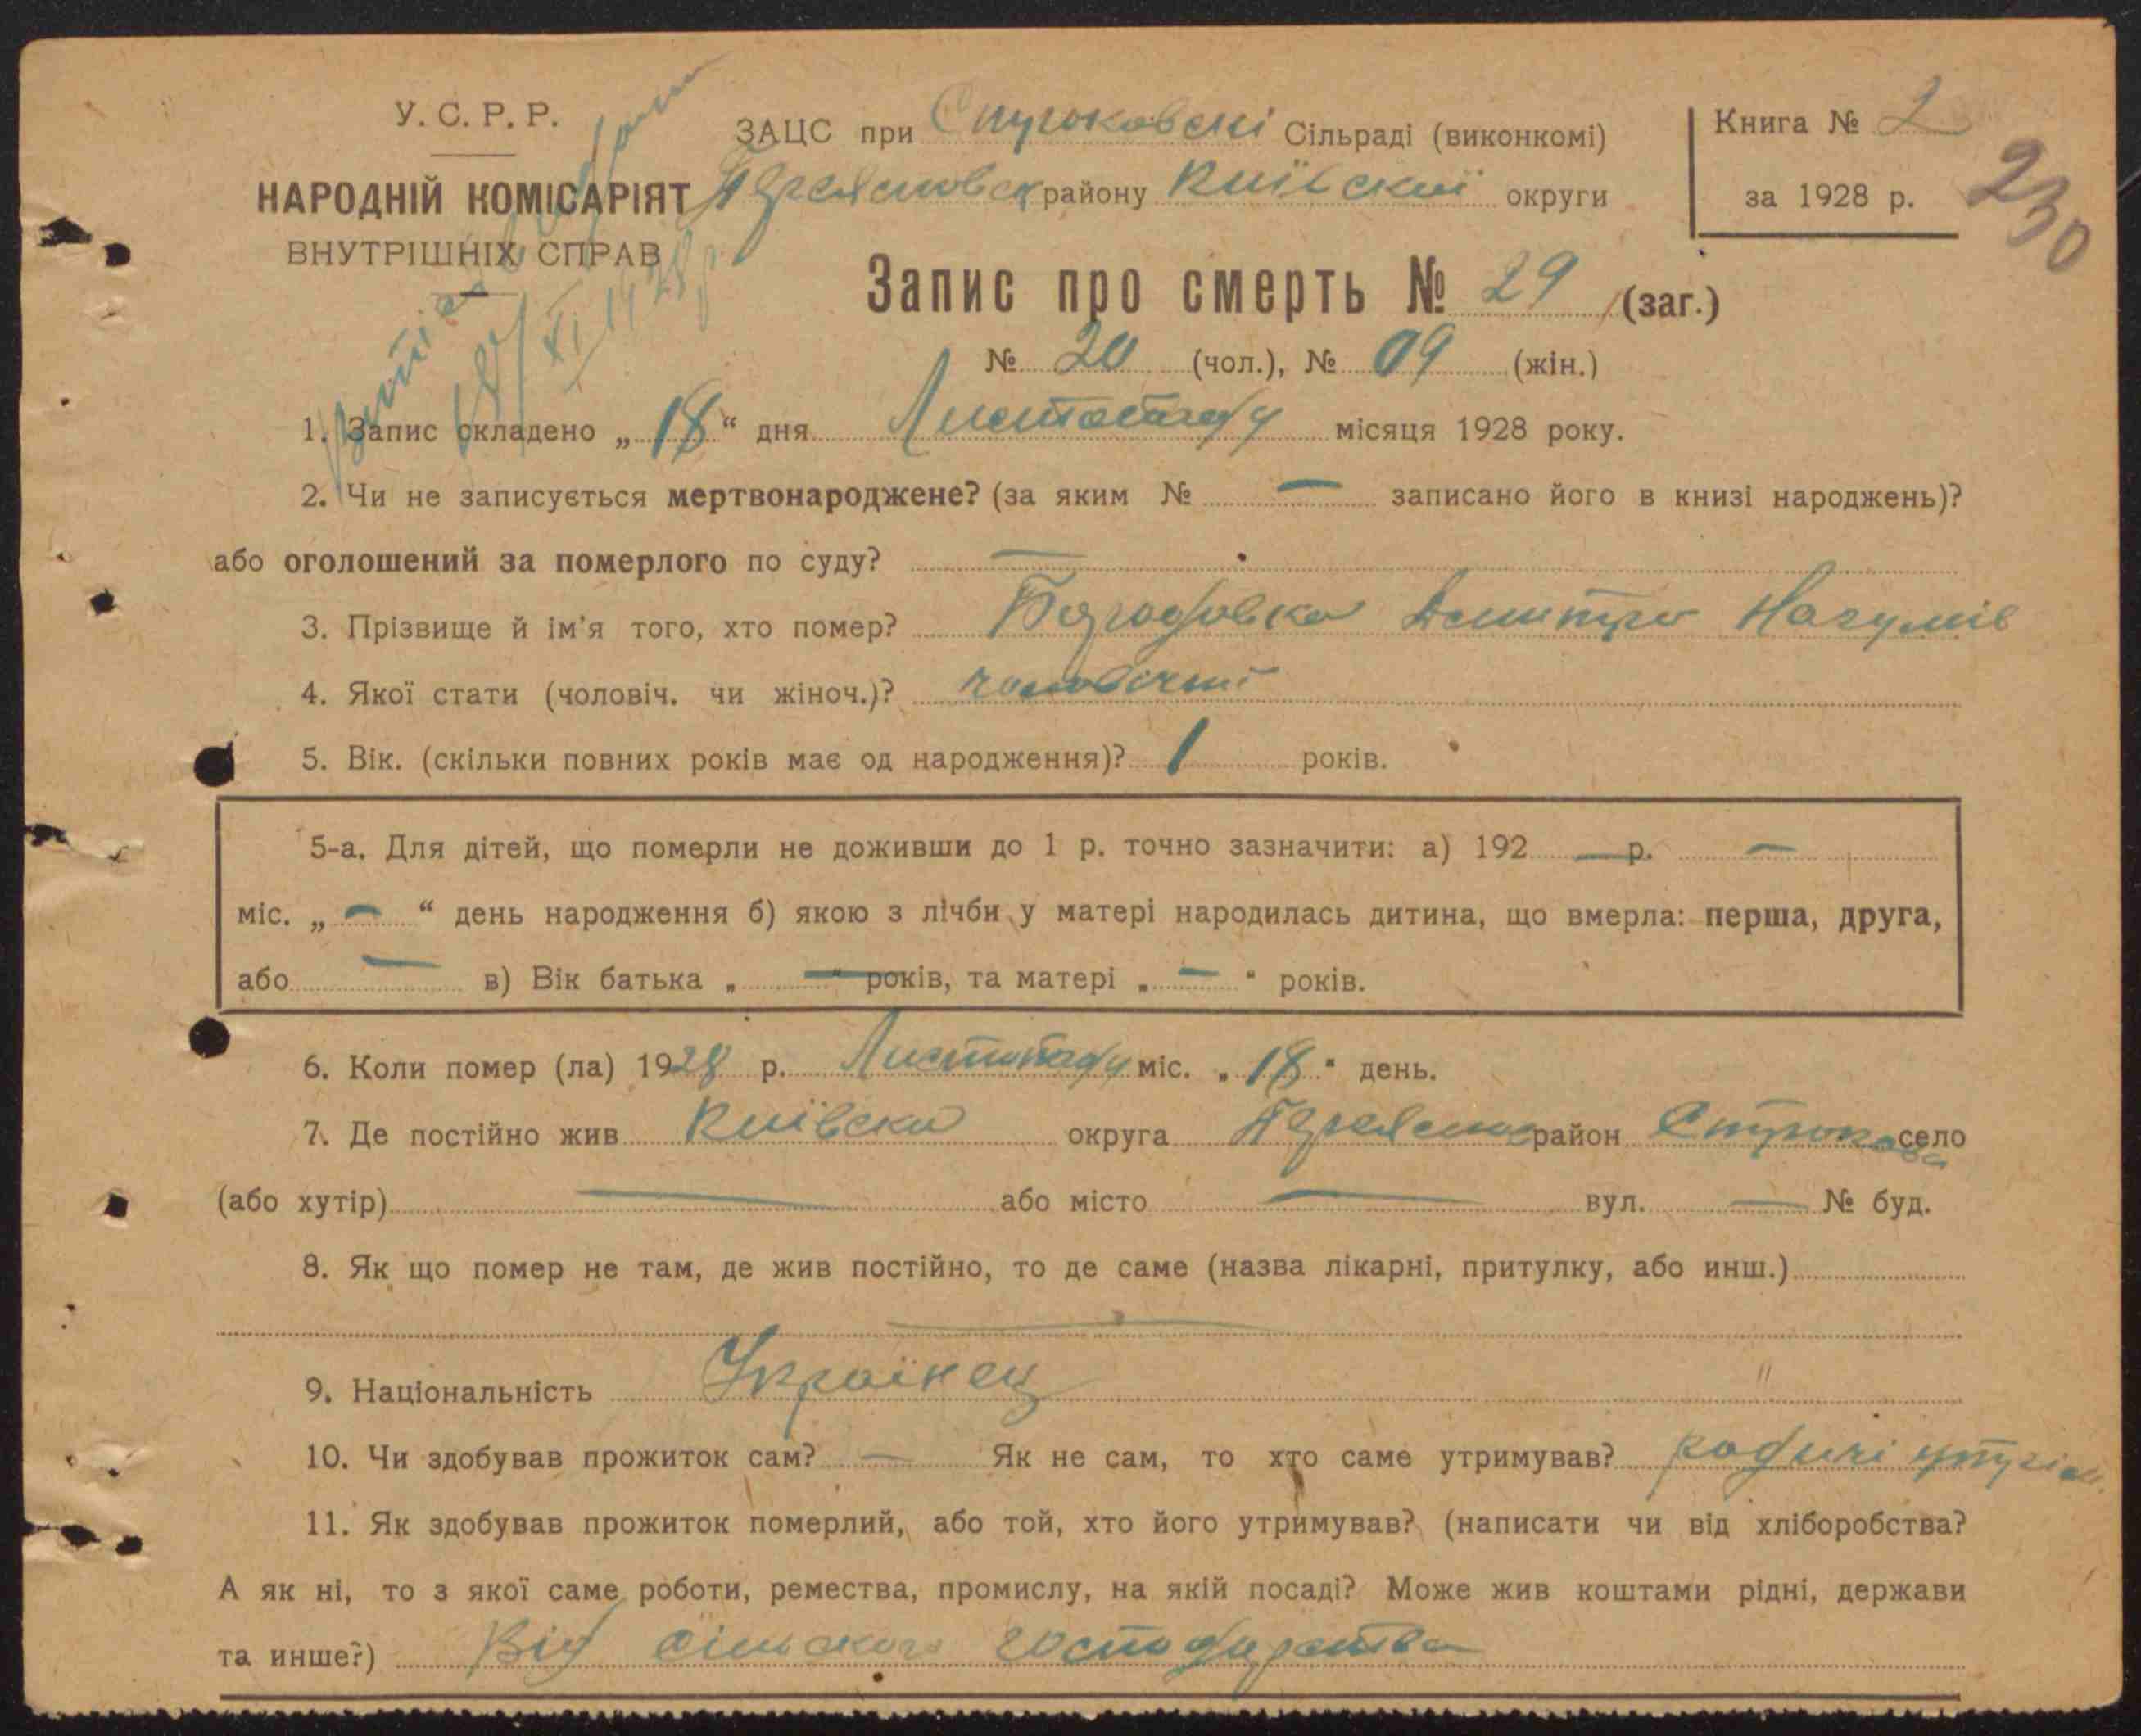 У. С. Р. Р.
НАРОДНІЙ КОМІСАРІЯТ
ВНУТРІШНІХ СПРАВ
ЗАЦС при Строковскі Сільраді (виконкомі)
району Київскої округи
Книга № 2
за 1928 р.
230
Запис про смерть № 29 (заг.)
№ 20 (чол.), № 09 (жін.)
1. Запис складено „ 18 “ дня Листопаду місяця 1928 року.
2. Чи не записується мертвонароджене? (за яким № — записано його в книзі народжень)?
або оголошений за померлого по суду? —
3. Прізвище й ім'я того, хто помер? Дмитро Наумів
4. Якої стати (чоловіч. чи жіноч.)? чоловічий
5. Вік. (скільки повних років має од народження)? 1 років.
5-а. Для дітей, що померли не доживши до 1 р. точно зазначити: а) 192 — р. —
міс. „ — “ день народження б) якою з лічби у матері народилась дитина, що вмерла: перша, друга,
або — в) Вік батька „ — “ років, та матері „ — “ років.
6. Коли помер (ла) 1928 р. Листопаду міс. „ 18 “ день.
7. Де постійно жив Київска округа район Строкова село
(або хутір) — або місто — вул. — № буд.
8. Як що помер не там, де жив постійно, то де саме (назва лікарні, притулку, або инш.)
—
9. Національність Українец
10. Чи здобував прожиток сам? — Як не сам, то хто саме утримував? родичі
11. Як здобував прожиток померлий, або той, хто його утримував? (написати чи від хліборобства?
А як ні, то з якої саме роботи, ремества, промислу, на якій посаді? Може жив коштами рідні, держави
та инше?) Від сільского господарства